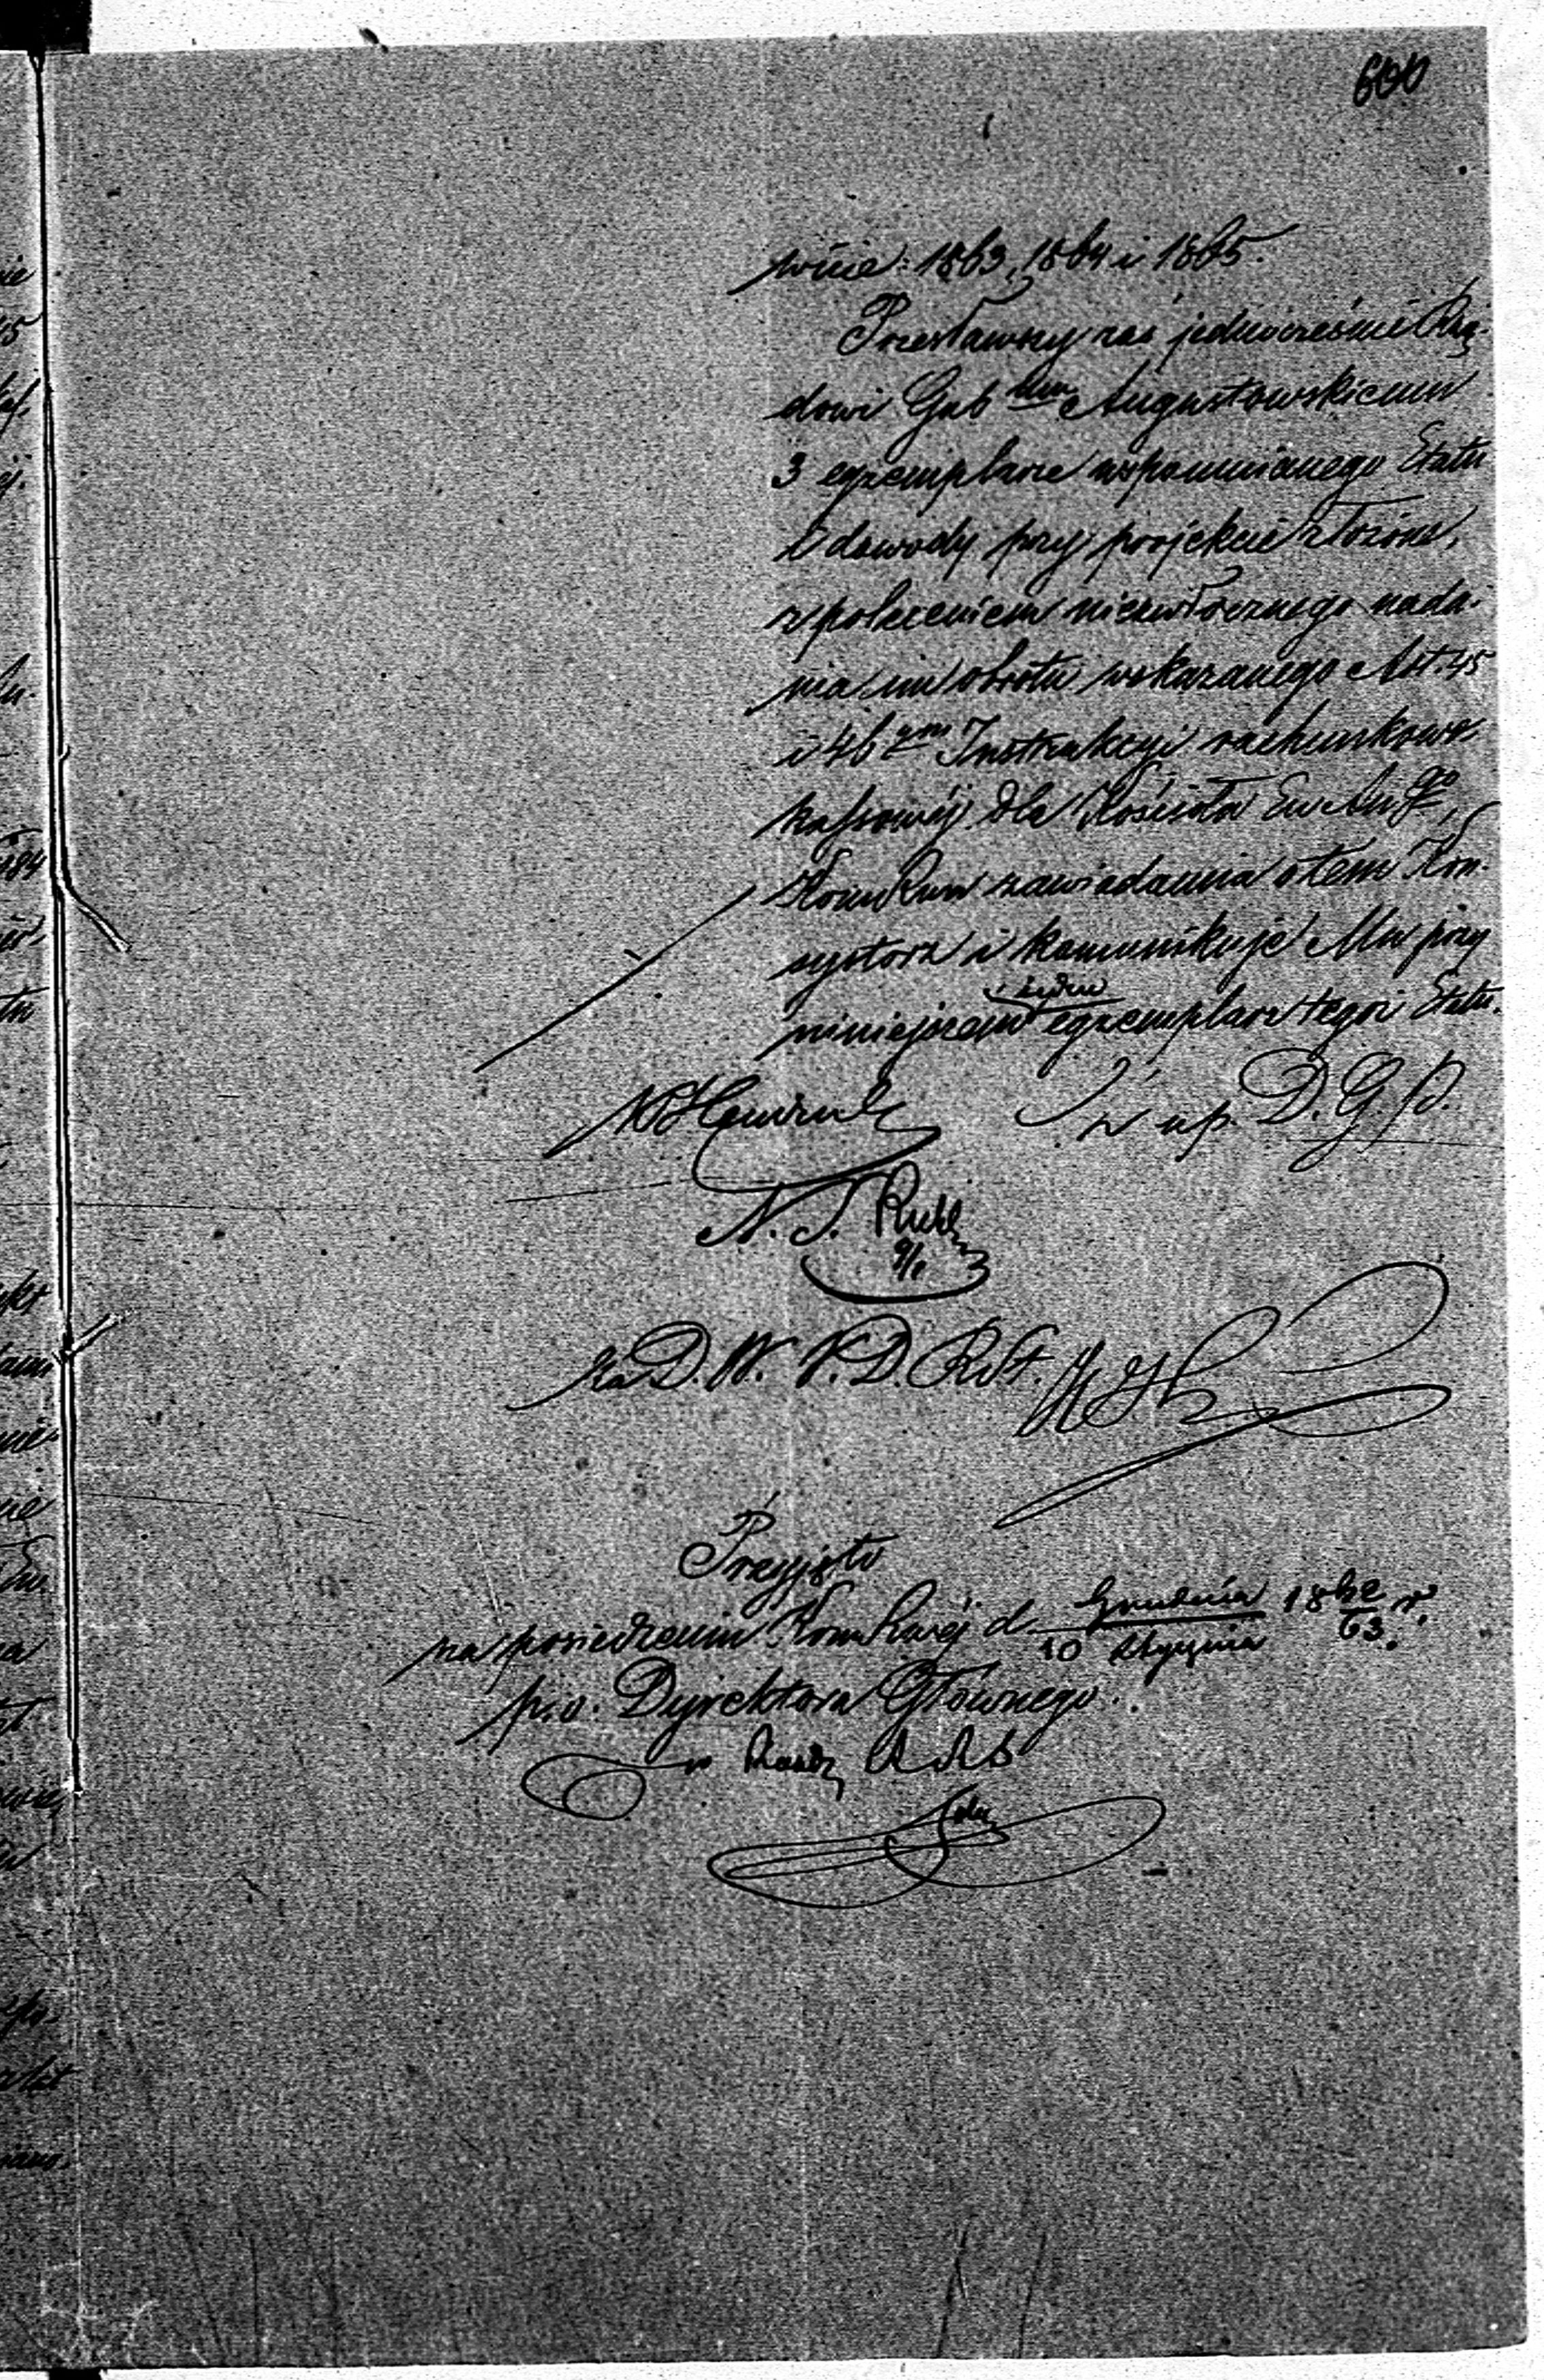 600
wicie: 1863, 1864 i 1865.
Przesławszy zaś jednocześnie Rzą-
dowi Gub lnu Augustowskiemu
3 egzemplarze wspomnianego Etatu
i dowody przy projekcie złożone,
z poleceniem niezwłocznego nada-
nia im obrotu wskazanego Art 45
i 46 ym Instrukcyi rachunkowo
kassowéj dla Kościoła Ew Au go,
Kom Rwa zawiadamia o tem Kon-
systorz i komunikuje Mu przy
niniejszem jeden egzemplarz tegoż Etatu.
z up. D. G. P.
N. J.
9/1
za D. W. K. D. R
Przyjęto
na posiedzeniu Kom Rwéj d. Grudnia / 10 Stycznia 1862/63 r.
p. o. Dyrektora Głównego.